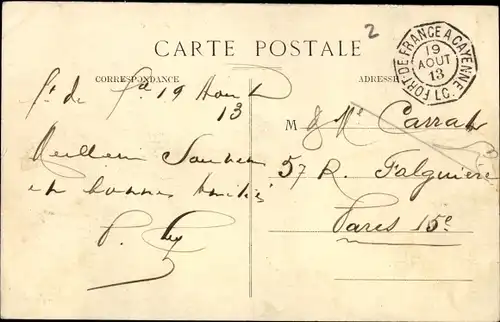 2
CARTE POSTALE
FORT DE FRANCE A CAYENNE
19
AOUT
13
L.C.
CORRESPONDANCE
ADRESSE
Ft de Fce 19 Aout
13
Meilleurs Souvenirs
et bonnes amitiés
P.
M & Me
57 R. Falguière
Paris 15e